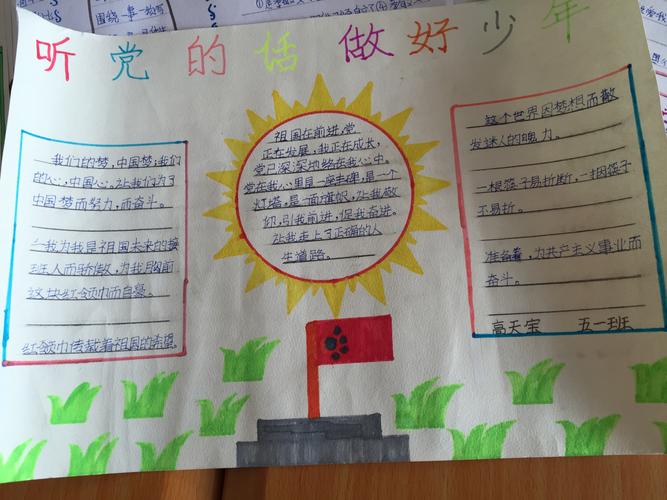 听党的话做好少年
我们的梦,中国梦,我们
的心,中国心,让我们为了
中国梦而努力,而奋斗。
我为我是祖国未来的接
班人而骄傲,为我胸前
这块红领巾而自豪。
红领巾传载着祖国的希望
祖国在前进,党
正在发展,我正在成长,
党已深深地烙在我心中。
党在我心里是一座丰碑,是一个
灯塔,是一面旗帜,让我敬
仰,引我前进,促我奋进。
让我走上了正确的人
生道路。
这个世界因梦想而散
发迷人的魄力。
一根筷子易折断,一把筷子
不易折。
准备着,为共产主义事业而
奋斗。
高天宝 五一班
围绕一事一物写